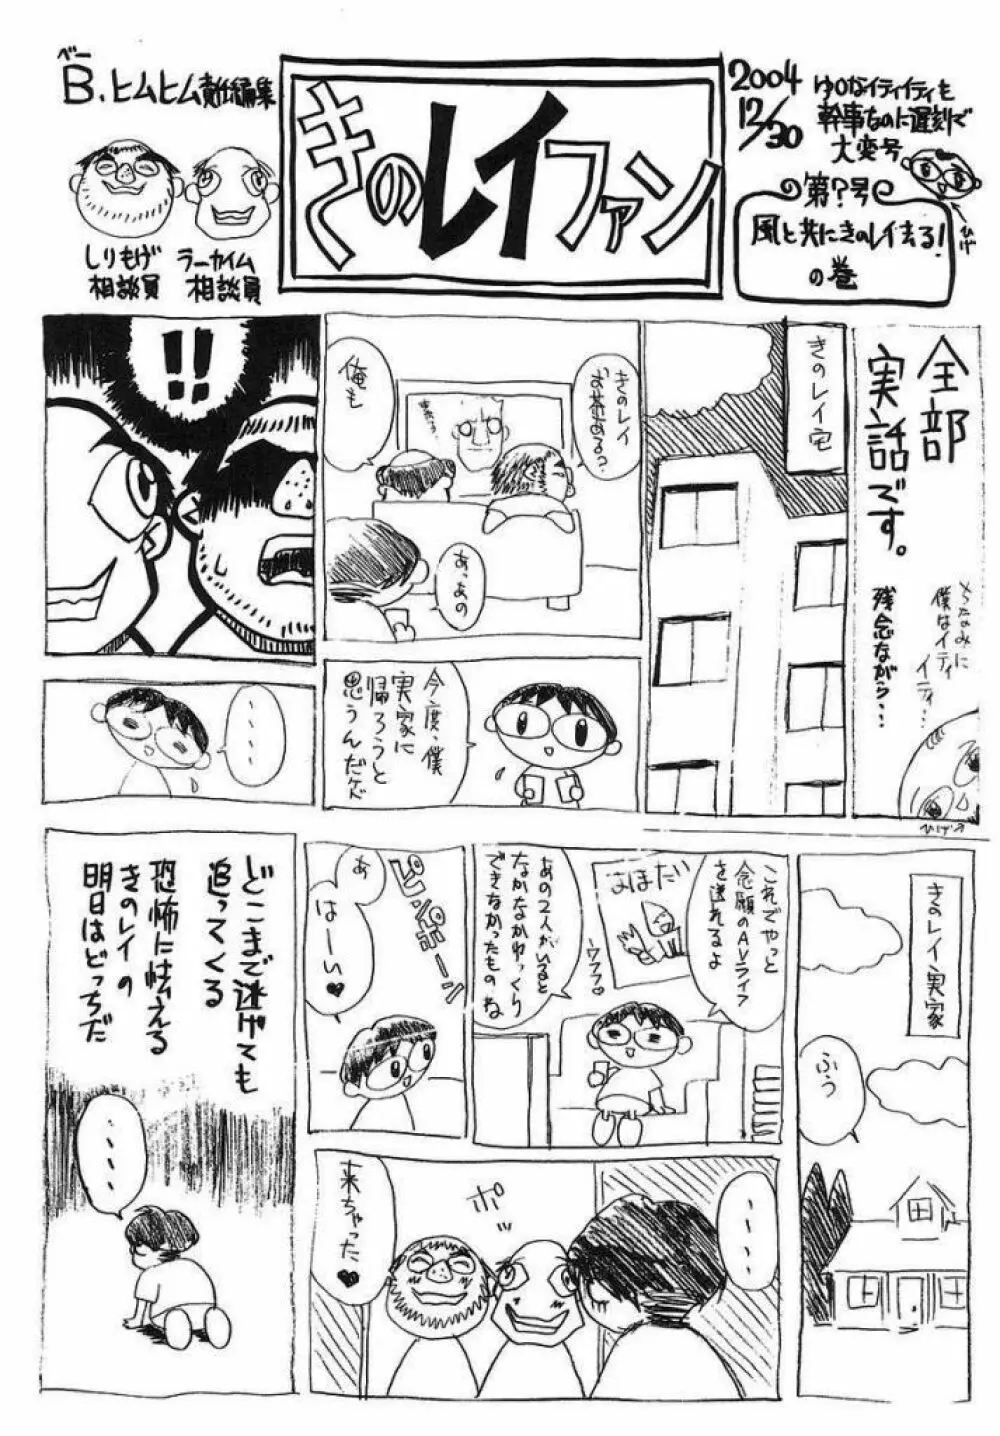 ベー
B.ヒムヒム責任編集
しりもげ
相談員
ラーカイム
相談員
きのレイファン
2004
12/30
ゆかなイティイティも
幹事なのに遅刻で
大変号
ひげ
第?号
風と共にきのレイ去る!
の巻
全部
実話です。
ちなみに
僕はイティ
イティ…
残念ながら…
ひげ
きのレイ宅
きのレイ
お茶ある?
俺も
あっあの
!!
今度、僕
実家に
帰ろうと
思うんだケド
・・・・
きのレイ実家
ふう
これでやっと
念願のAVライフ
を送れるよ
はほたい
ウフフ♡
あの2人がいると
なかなかゆっくり
できなかったもの
ね
ピンポーン
あ
はーい♥
・・・・
ポッ
来ちゃった♥
どこまで逃げても
追ってくる
恐怖に怯える
きのレイの
明日はどっちだ
・・・・